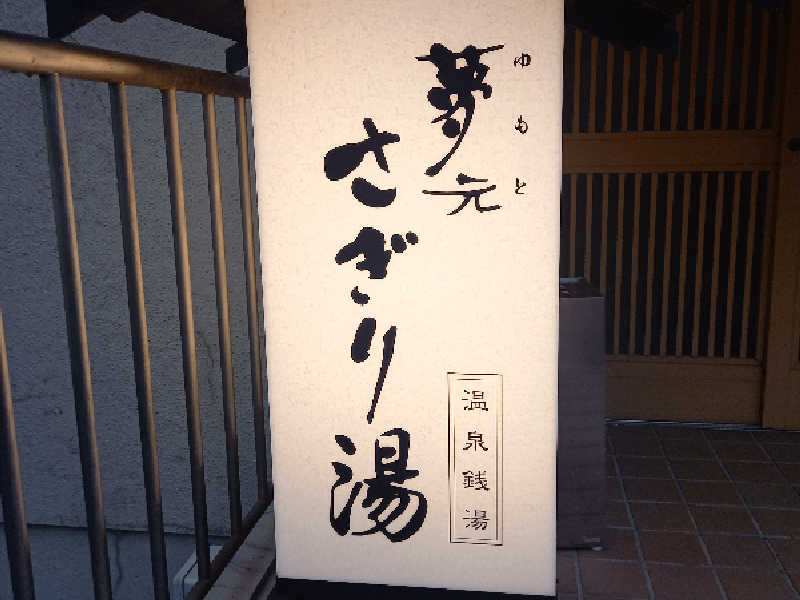 ゆもと
夢元
さぎり湯
温泉銭湯